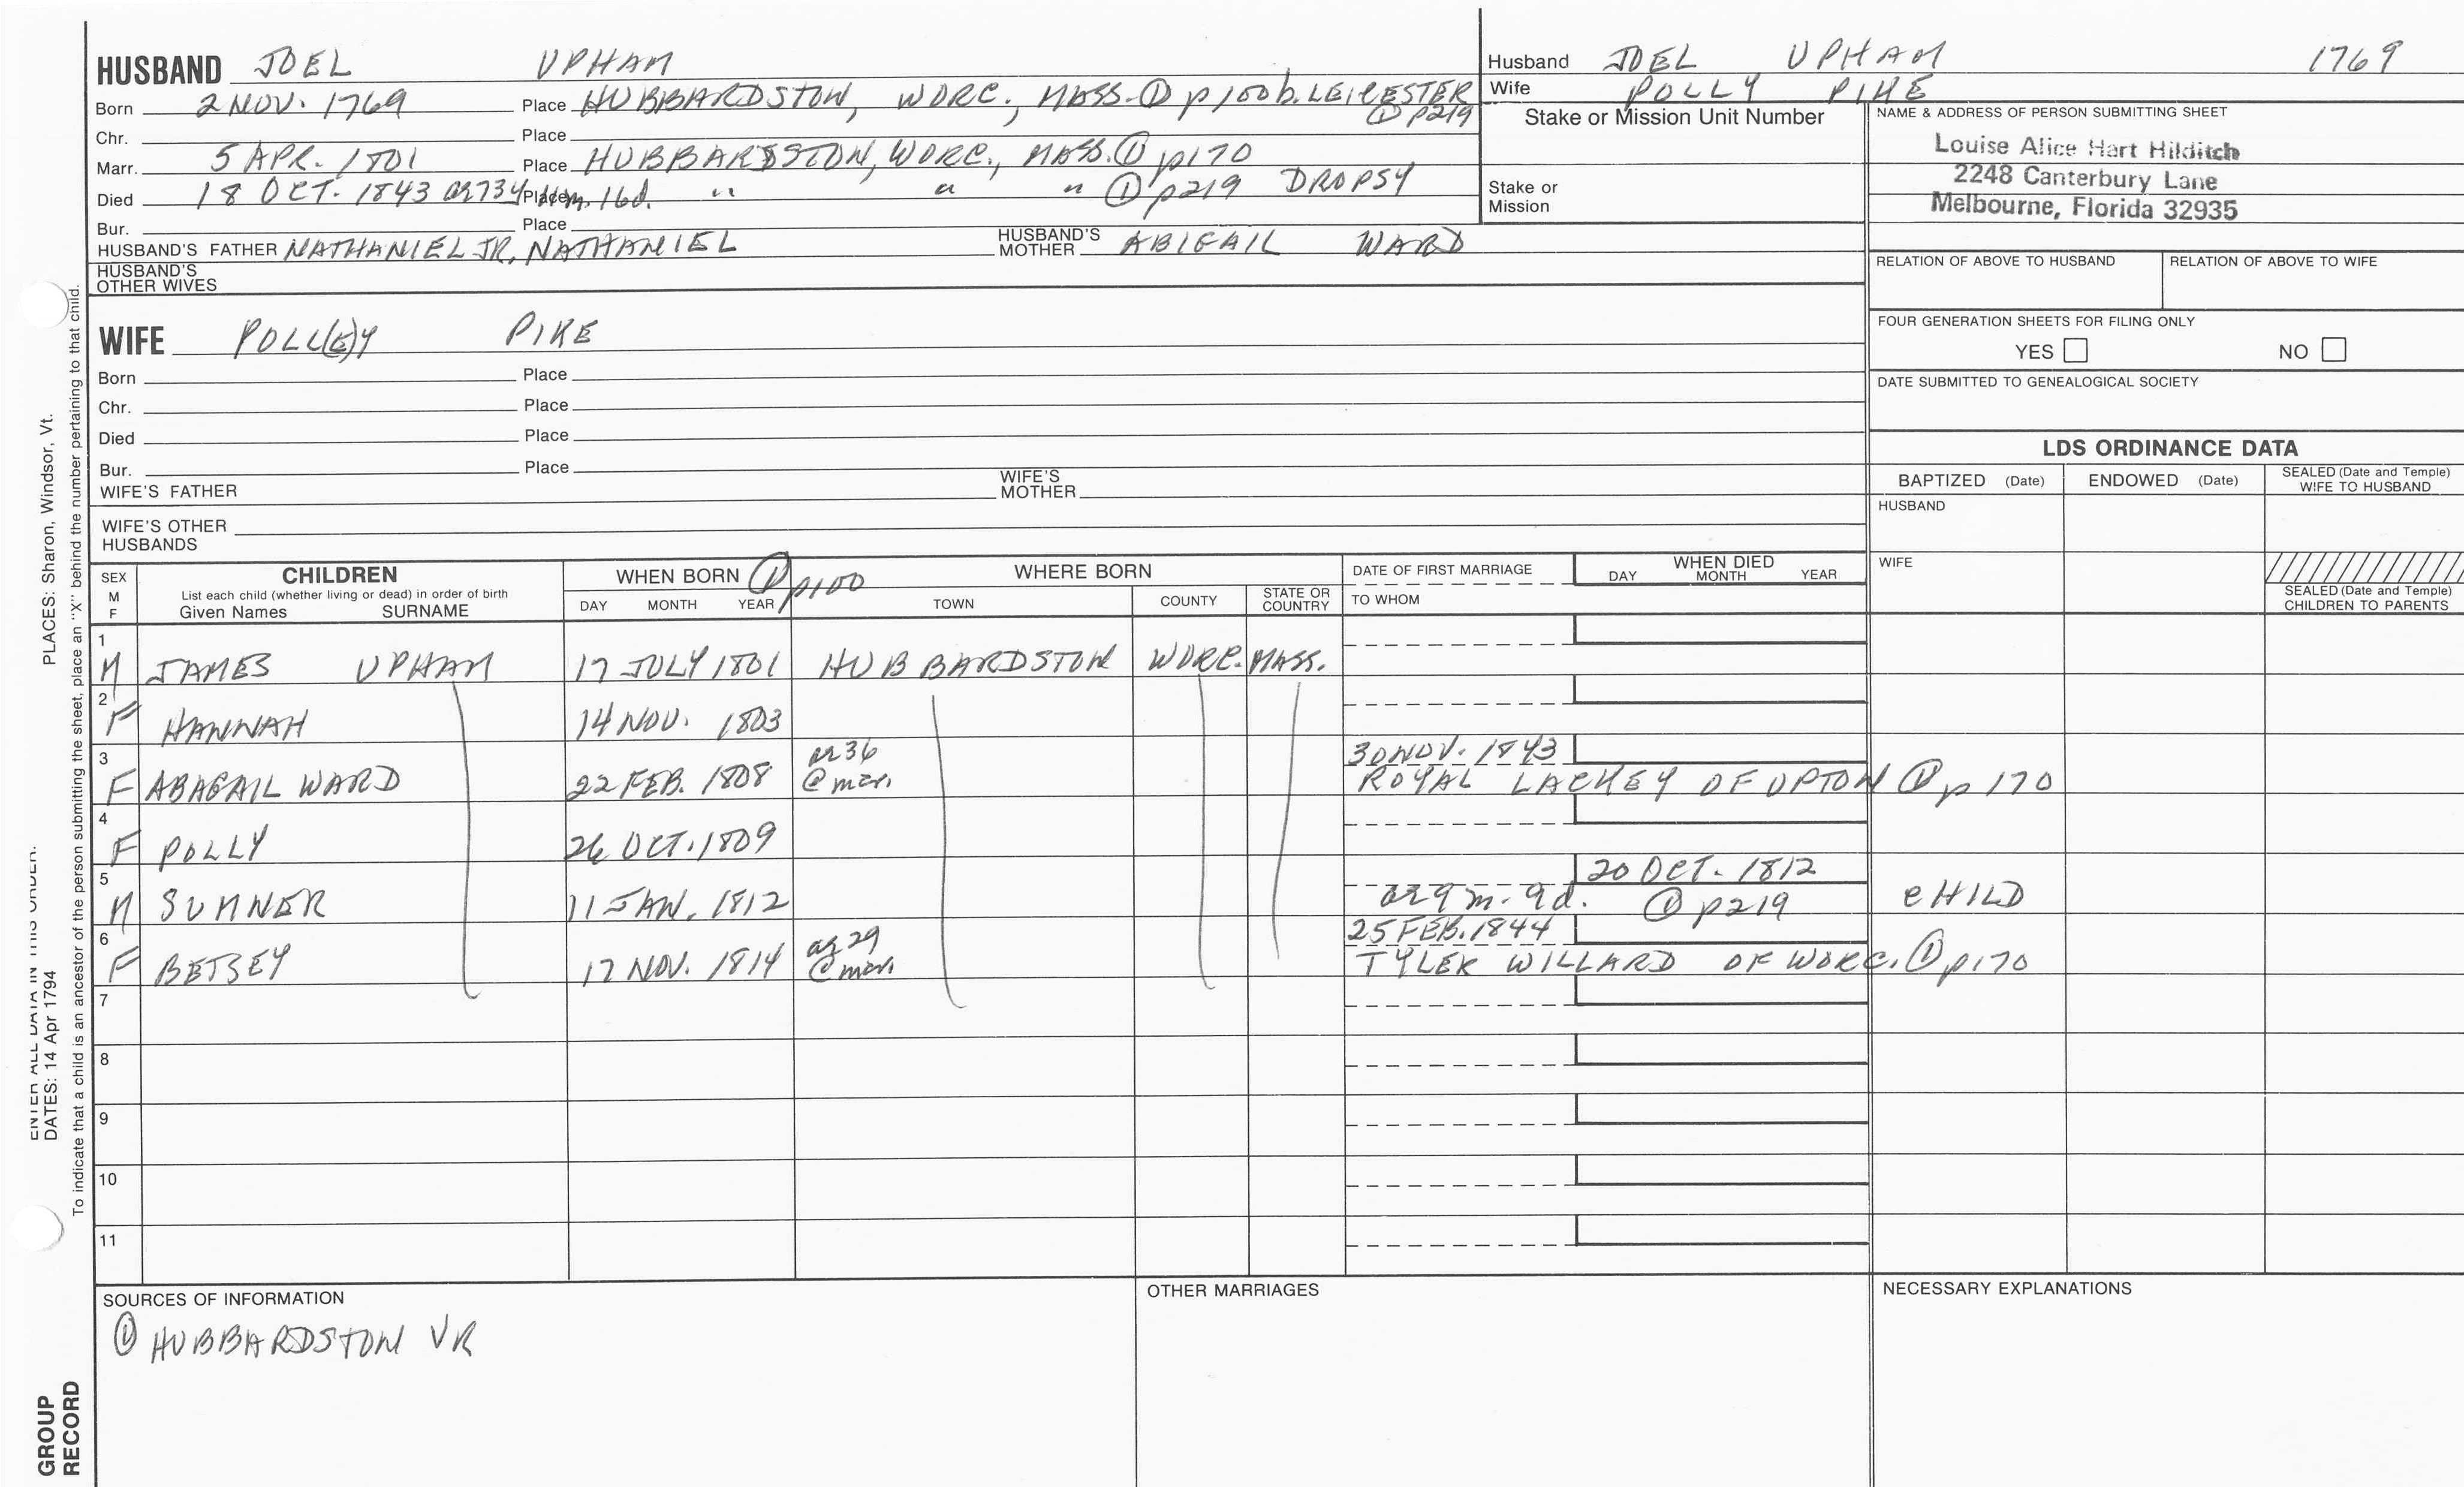 HUSBAND JOEL UPHAM
Born 2 NOV. 1769 Place HUBBARDSTON, WORC., MASS. ① p100 b. LEICESTER
① p219
Chr. Place
Marr. 5 APR. 1801 Place HUBBARDSTON, WORC., MASS. ① p170
Died 18 OCT. 1843 ae 73y Place 11m. 16d. " " " ① p219 DROPSY
Bur. Place
HUSBAND'S FATHER NATHANIEL JR, NATHANIEL HUSBAND'S MOTHER ABIGAIL WARD
HUSBAND'S
OTHER WIVES
Husband JOEL UPHAM 1769
Wife POLLY PIKE
Stake or Mission Unit Number
Stake or
Mission
NAME & ADDRESS OF PERSON SUBMITTING SHEET
Louise Alice Hart Hilditch
2248 Canterbury Lane
Melbourne, Florida 32935
RELATION OF ABOVE TO HUSBAND RELATION OF ABOVE TO WIFE
FOUR GENERATION SHEETS FOR FILING ONLY
YES NO
DATE SUBMITTED TO GENEALOGICAL SOCIETY
WIFE POLL(E)Y PIKE
Born Place
Chr. Place
Died Place
Bur. Place
WIFE'S FATHER WIFE'S MOTHER
WIFE'S OTHER
HUSBANDS
LDS ORDINANCE DATA
BAPTIZED (Date) ENDOWED (Date) SEALED (Date and Temple)
WIFE TO HUSBAND
HUSBAND
WIFE
SEALED (Date and Temple)
CHILDREN TO PARENTS
SEX
M
F
CHILDREN
List each child (whether living or dead) in order of birth
Given Names SURNAME
WHEN BORN ① p100
DAY MONTH YEAR
WHERE BORN
TOWN COUNTY STATE OR
COUNTRY
DATE OF FIRST MARRIAGE
TO WHOM
WHEN DIED
DAY MONTH YEAR
1
M JAMES UPHAM 17 JULY 1801 HUBBARDSTON WORC. MASS.
2
F HANNAH 14 NOV. 1803
3 ae 36 30 NOV. 1843
F ABAGAIL WARD 22 FEB. 1808 @ mar. ROYAL LACKEY OF UPTON ① p170
4
F POLLY 26 OCT. 1809
5 20 OCT. 1812
M SUMNER 11 JAN. 1812 ae 9 m. 9 d. ① p219 CHILD
6 ae 29 25 FEB. 1844
F BETSEY 17 NOV. 1814 @ mar. TYLER WILLARD OF WORC. ① p170
7
8
9
10
11
SOURCES OF INFORMATION
① HUBBARDSTON VR
OTHER MARRIAGES
NECESSARY EXPLANATIONS
PLACES: Sharon, Windsor, Vt.
ENTER ALL DATA IN THIS ORDER:
DATES: 14 Apr 1794
To indicate that a child is an ancestor of the person submitting the sheet, place an "X" behind the number pertaining to that child.
GROUP
RECORD